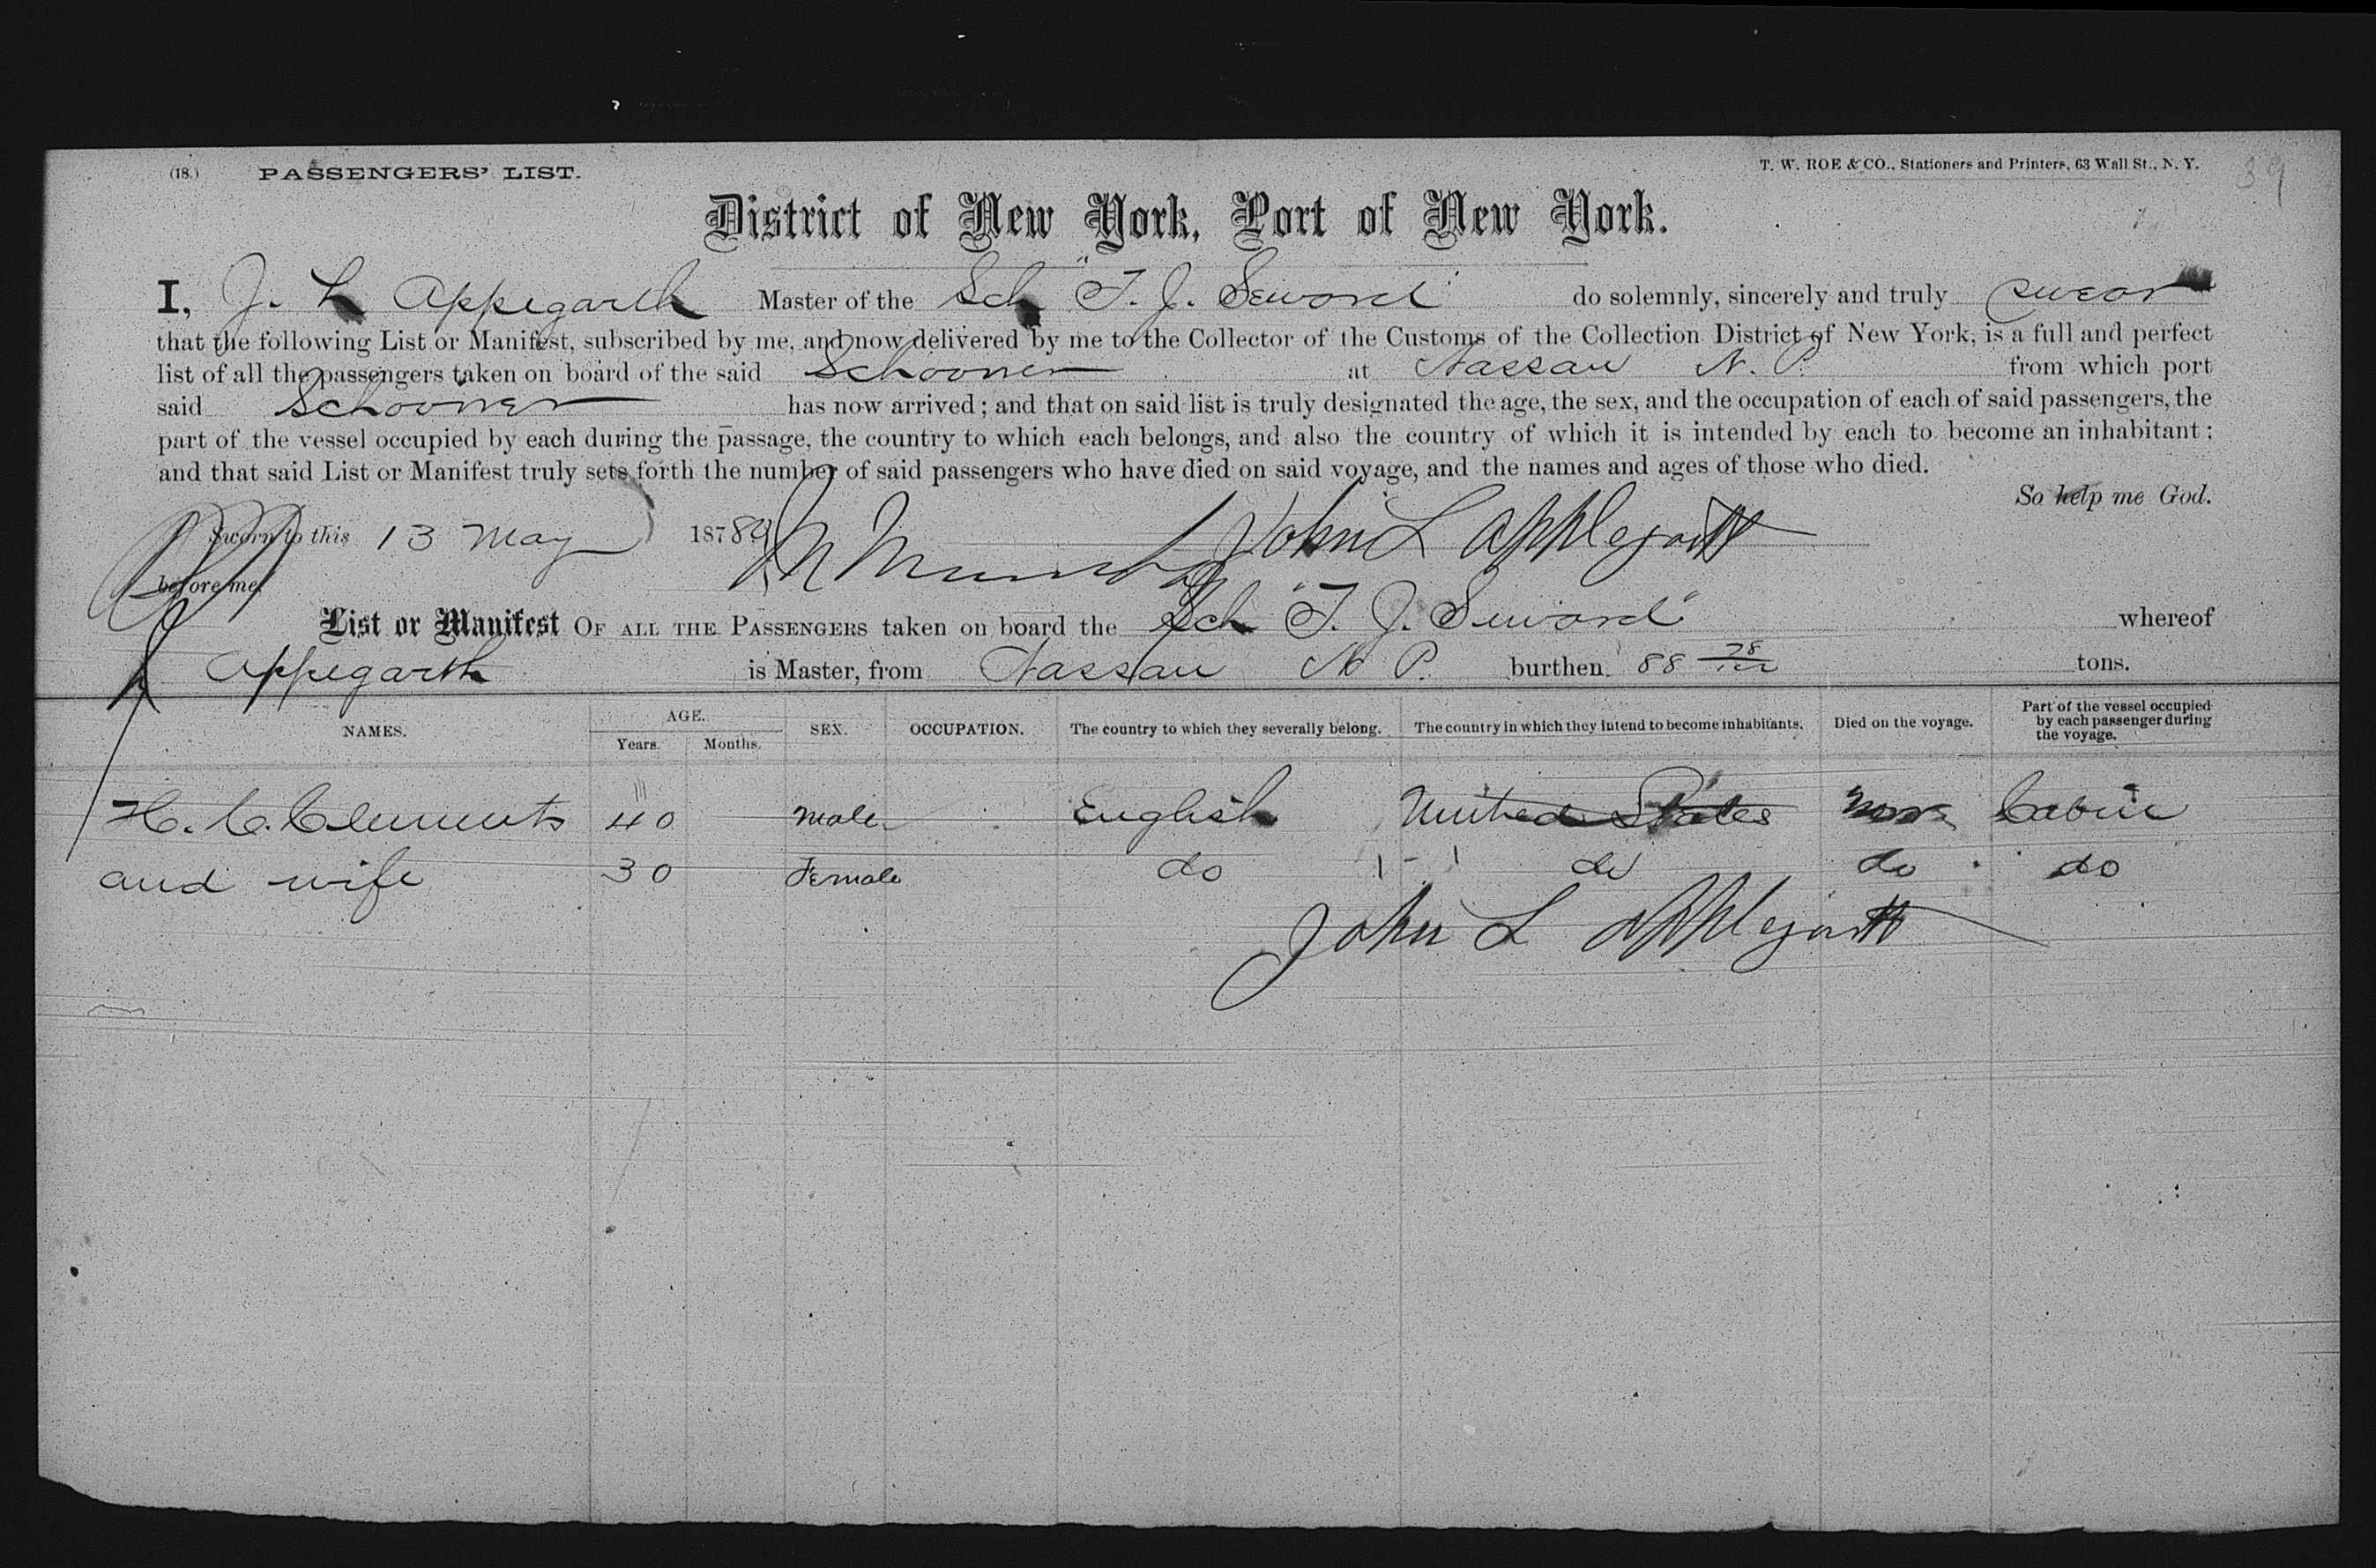 (18.) PASSENGERS' LIST. T. W. ROE & CO., Stationers and Printers, 63 Wall St., N. Y. 39
District of New York, Port of New York.
I, J. L Appegarth Master of the Sch "T. J. Seword" do solemnly, sincerely and truly swear
that the following List or Manifest, subscribed by me, and now delivered by me to the Collector of the Customs of the Collection District of New York, is a full and perfect
list of all the passengers taken on board of the said Schooner at Nassau N. P. from which port
said Schooner has now arrived; and that on said list is truly designated the age, the sex, and the occupation of each of said passengers, the
part of the vessel occupied by each during the passage, the country to which each belongs, and also the country of which it is intended by each to become an inhabitant;
and that said List or Manifest truly sets forth the number of said passengers who have died on said voyage, and the names and ages of those who died.
So help me God.
Sworn to this 13 May 18789 John L Applegartt
before me
List or Manifest OF ALL THE PASSENGERS taken on board the Sch "T. J. Seword" whereof
Appegarth is Master, from Nassau N P. burthen 88 28/100 tons.
NAMES. AGE. Years. Months. SEX. OCCUPATION. The country to which they severally belong. The country in which they intend to become inhabitants. Died on the voyage. Part of the vessel occupied by each passenger during the voyage.
H. C. Clements 40 Male English United States None Cabin
and wife 30 Female do do do do
John L Applegartt